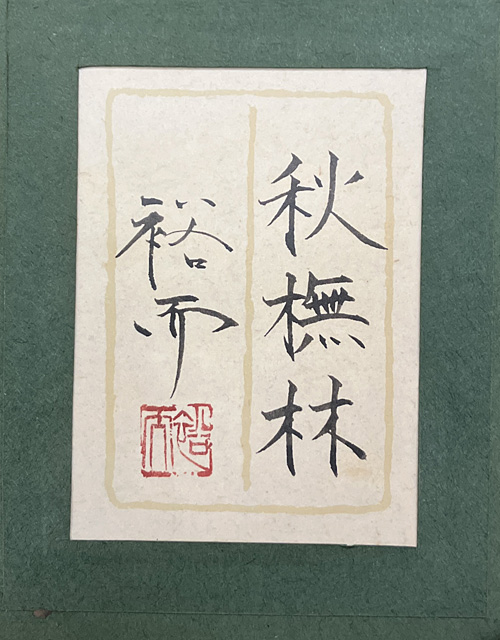 秋橅林
裕而